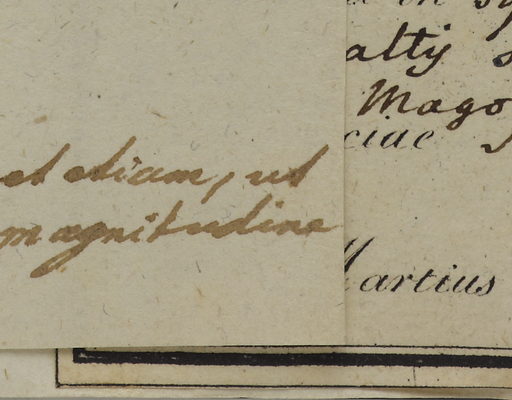 et etiam, ut
magnitudine
alty
Mago
ciae
Martius